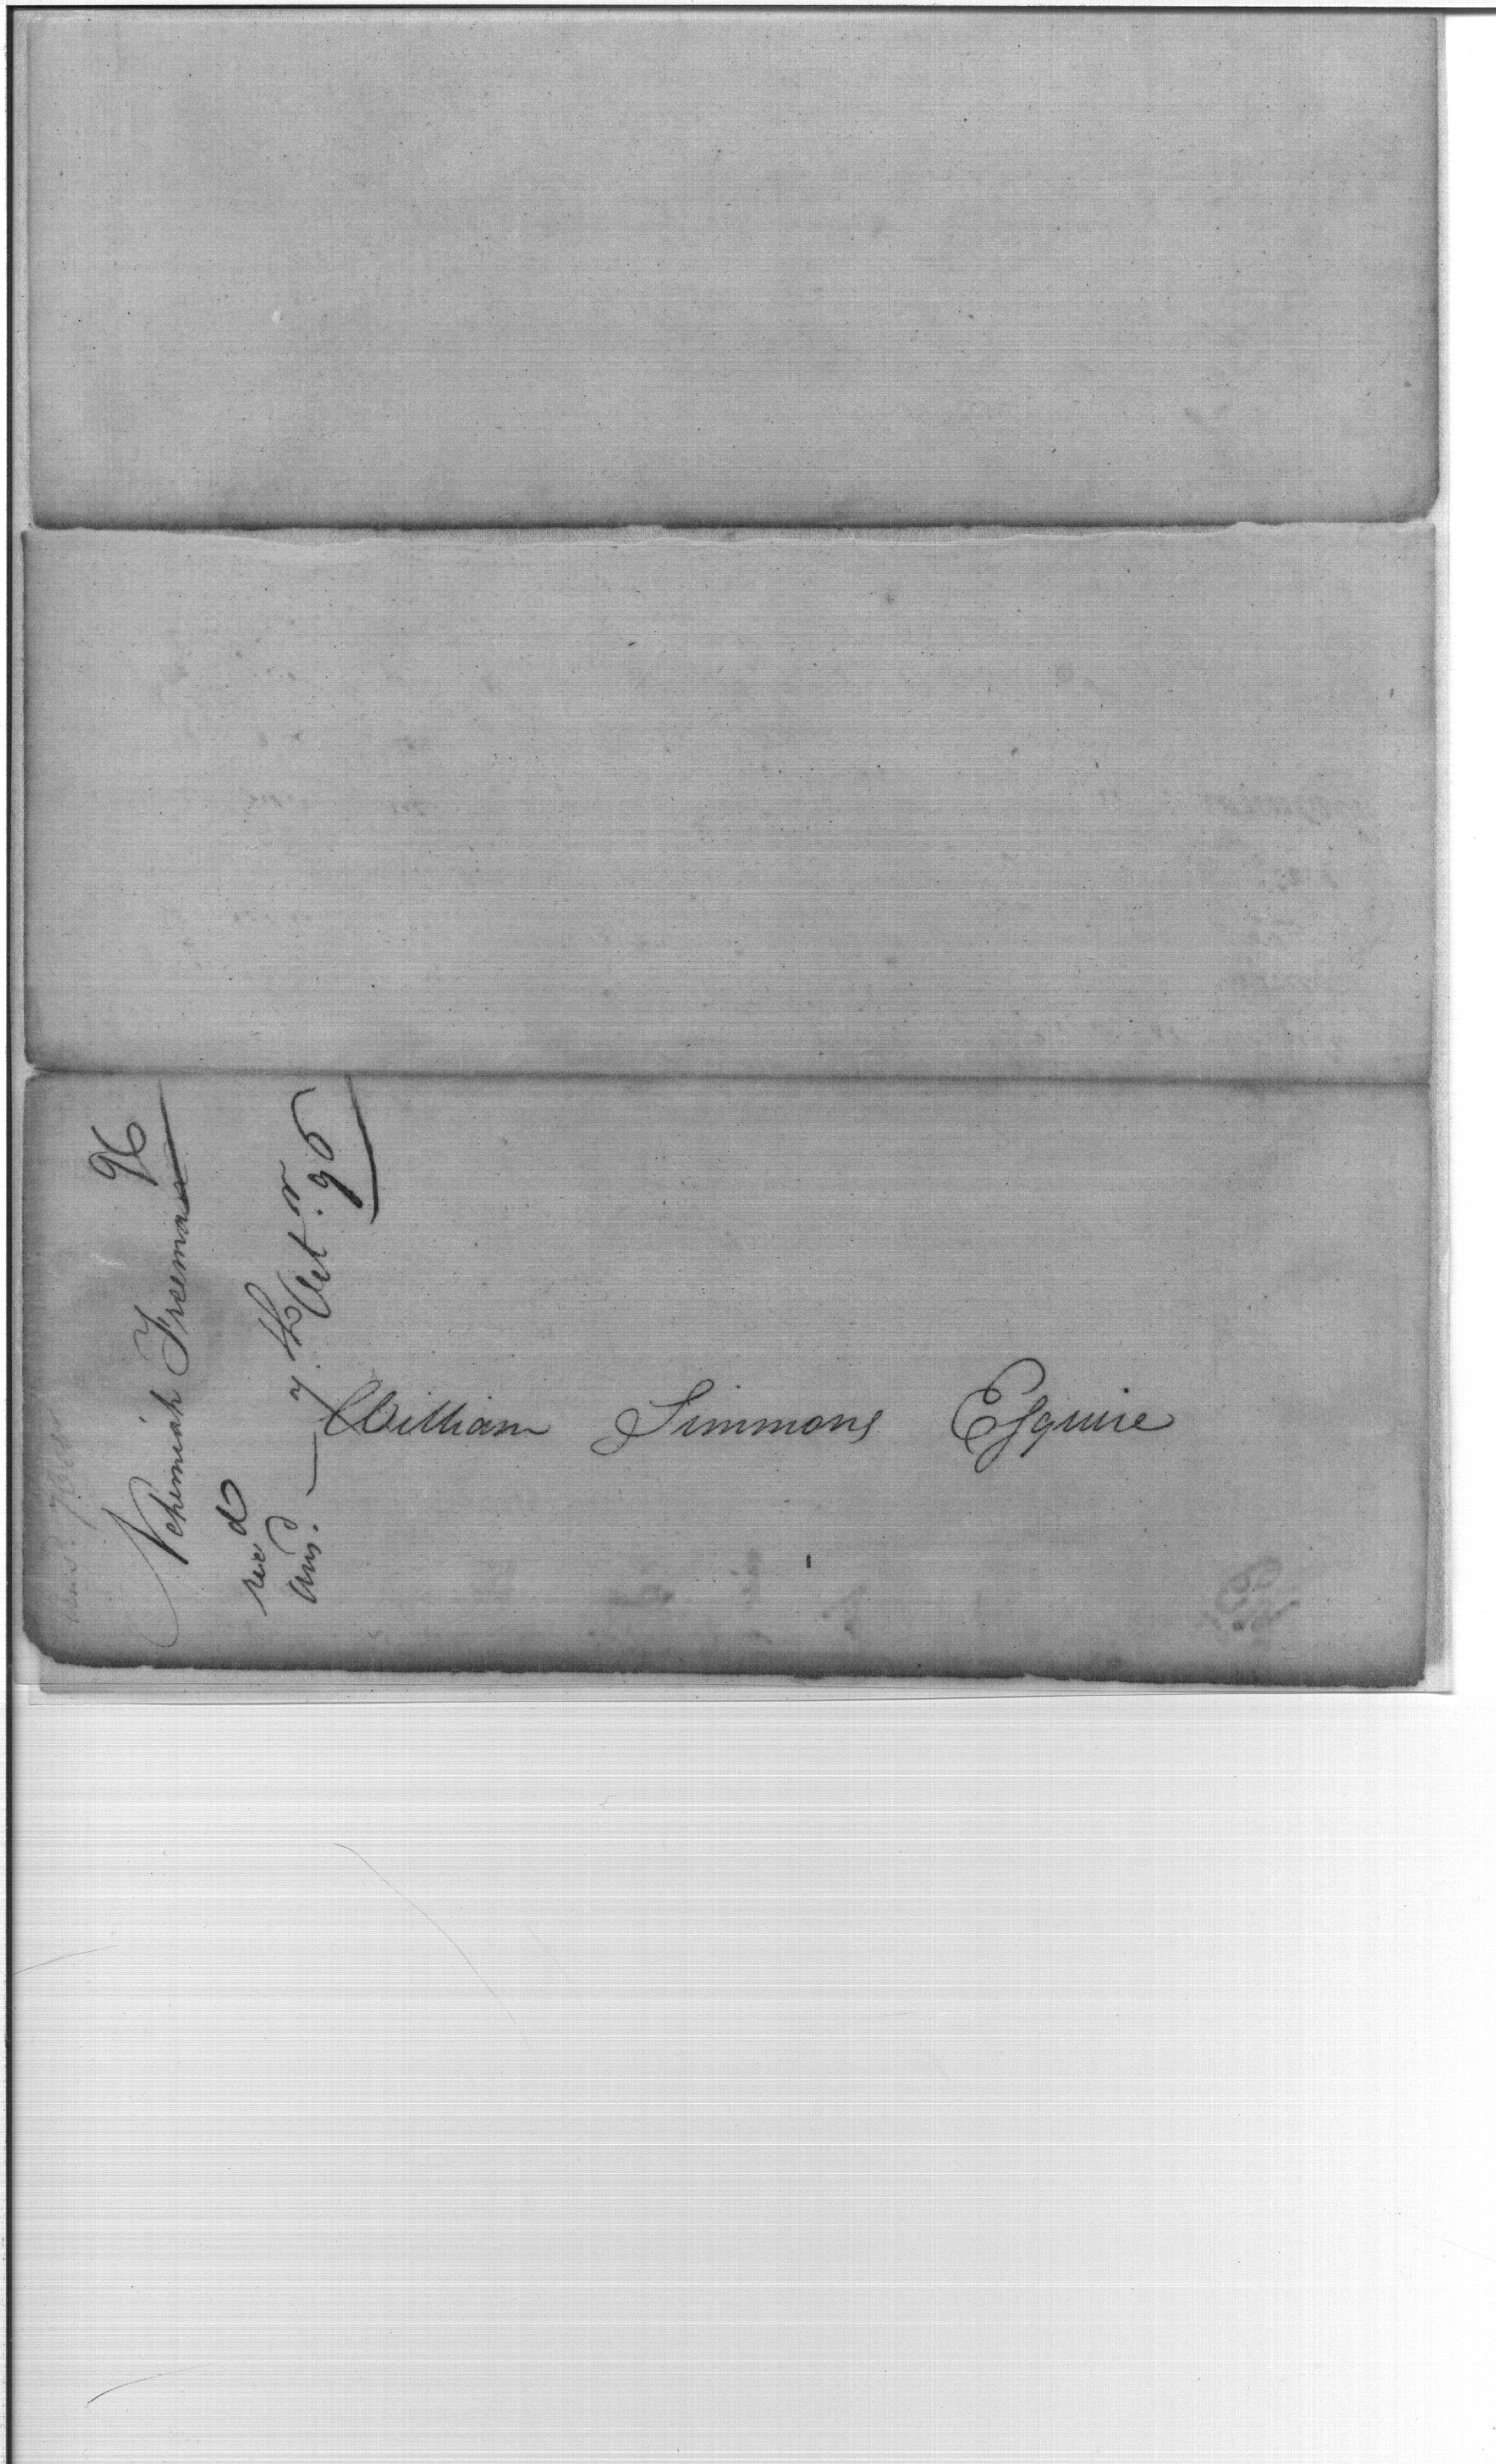 Nehemiah Freeman 96
recd
ansd. — 7th Octr. 96
William Simmons Esquire